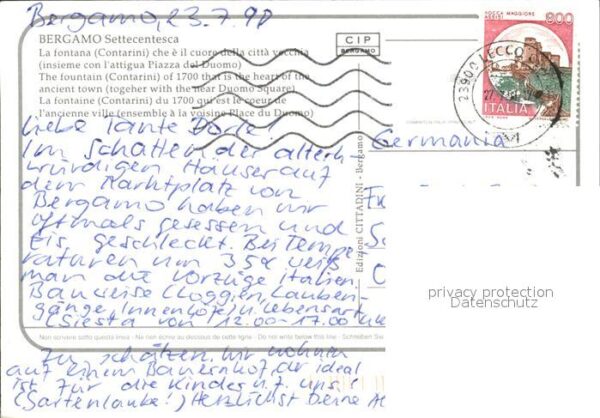 Bergamo, 23.7.98
BERGAMO Settecentesca
La fontana (Contarini) che è il cuore della città vecchia
(insieme con l'attigua Piazza del Duomo)
The fountain (Contarini) of 1700 that is the heart of the
ancient town (togeher with the near Duomo Square)
La fontaine (Contarini) du 1700 qui est le coeur de
l'ancienne ville (ensemble à la voisine Place du Duomo)
CIP
BERGAMO
ROCCA MAGGIORE
ASSISI
800
ITALIA
23900 LECCO
Liebe Tante Dorle!
Im Schatten der altehr-
würdigen Häuser auf
dem Marktplatz von
Bergamo haben wir
oftmals gesessen und
Eis geschleckt. Bei Tempe-
raturen um 35° weiß
man die Vorzüge italien.
Bauweise (Loggien, Lauben-
gänge, Innenhöfe) u. Lebensart
(Siesta von 12.00-17.00
Non scrivere sotto questa linea - Ne rien écrire au dessous de cette ligne - Do not write below this line - Schreiben Sie
zu schätzen. Wir wohnen
auf einem Bauernhof, der ideal
ist für die Kinder u. f. uns
(Gartenlaube!) Herzlichst Deine
Edizioni CITTADINI - Bergamo
Germania
privacy protection
Datenschutz